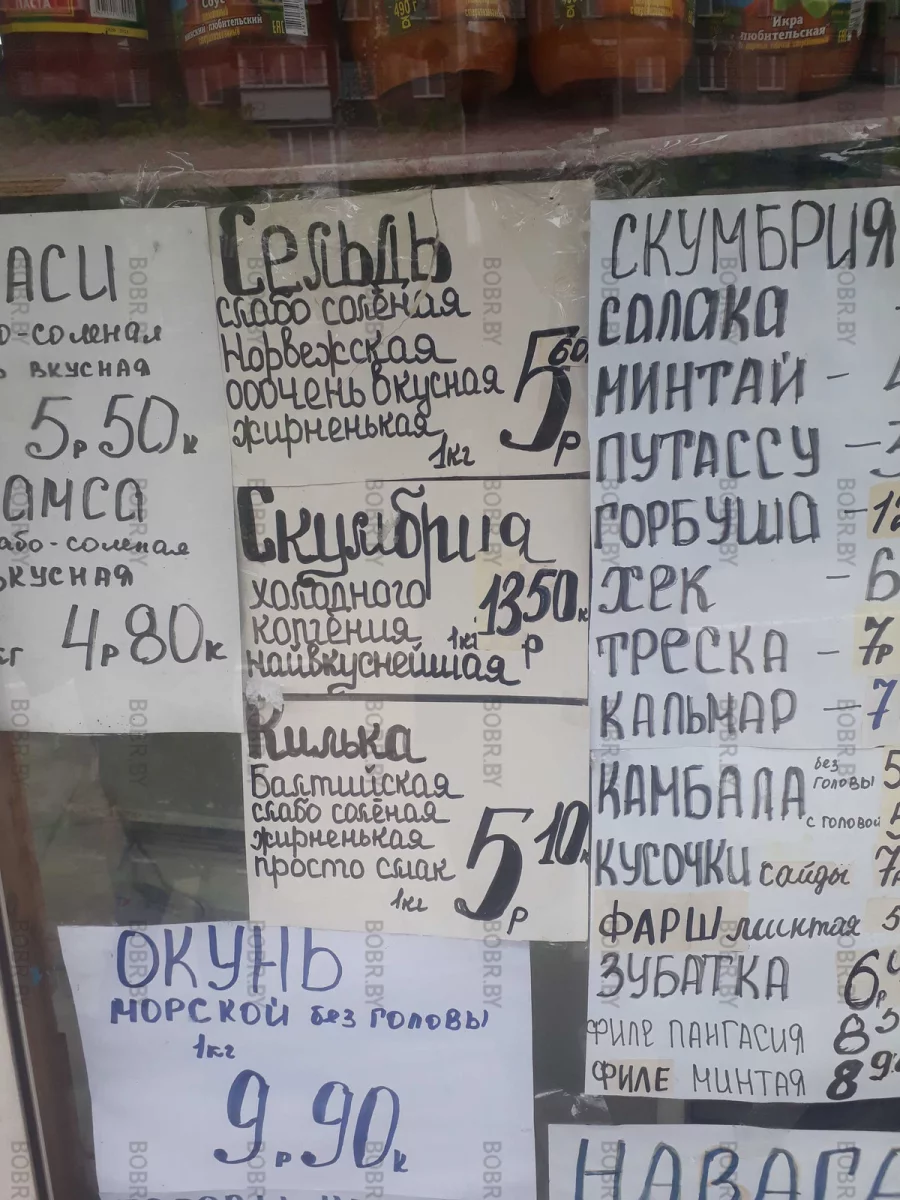 490 г
Икра
любительская
АСИ
о-соленая
ВКУСНАЯ
5р 50к
АМСА
або-соленая
ВКУСНАЯ
4р 80к
Сельдь
слабо солёная
Норвежская
ооочень вкусная
жирненькая
1кг
5р 60
Скумбрия
холодного
копчения
найвкуснейшая
1кг
13р 50к
Килька
Балтийская
слабо солёная
жирненькая
просто смак
1кг
5р 10к
ОКУНЬ
МОРСКОЙ без головы
1кг
9р 90к
СКУМБРИЯ
САЛАКА -
МИНТАЙ -
ПУТАССУ -
ГОРБУША - 12
ХЕК - 6
ТРЕСКА - 7р
КАЛЬМАР - 7
КАМБАЛА без головы 5
с головой
КУСОЧКИ сайды 7р
ФАРШ минтая 5
ЗУБАТКА 6р
ФИЛЕ ПАНГАСИЯ 8
ФИЛЕ МИНТАЯ 8 9
НАВАГА
BOBR.BY